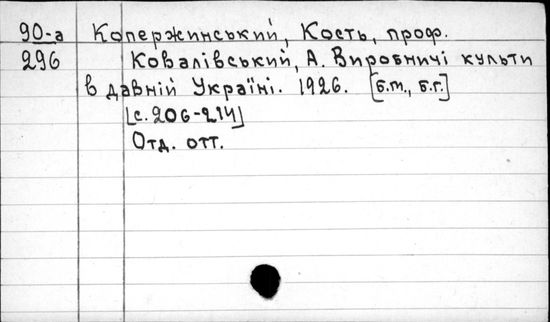 90-а Копержинський, Кость, проф.
296 Ковалівський, А. Виробничі культи
в давній Україні. 1926. [б.м., б.г.]
[с. 206-214]
Отд. отт.